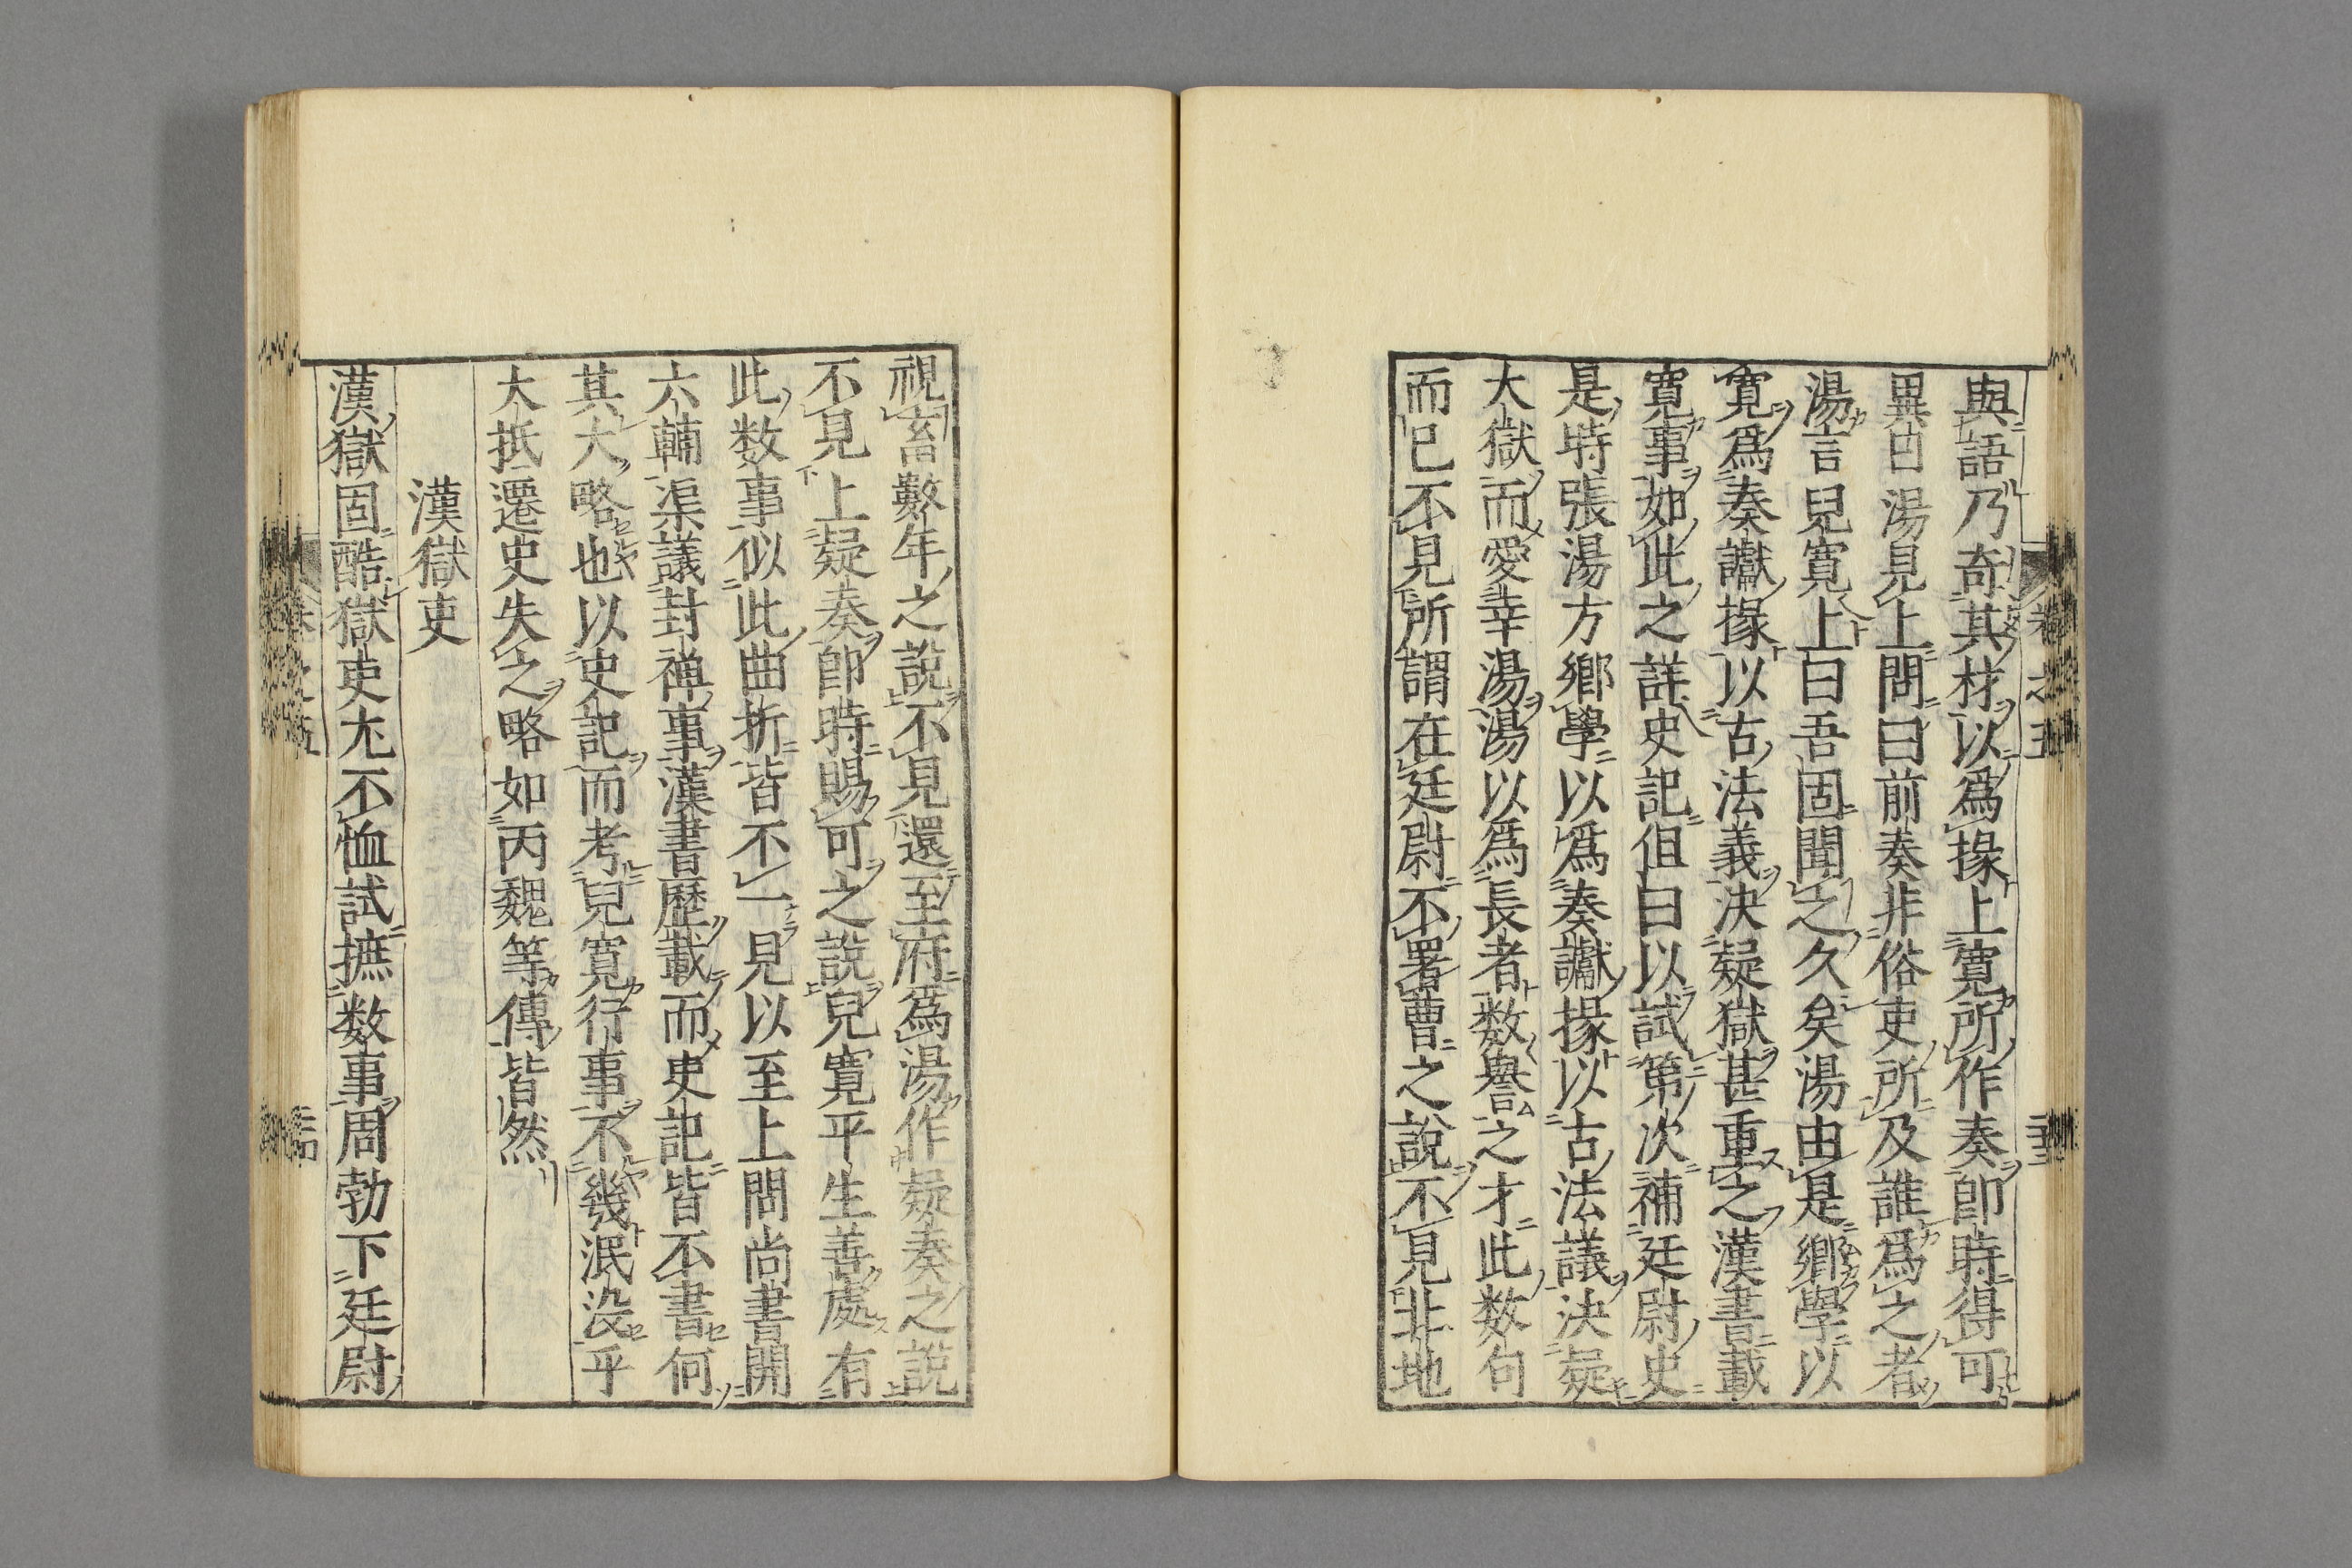 與語乃奇其材以爲掾上寬所作奏卽時得可
異日湯見上問曰前奏非俗吏所及誰爲之者
湯言兒寬上曰吾固聞之久矣湯由是鄉學以
寬爲奏讞掾以古法義決疑獄甚重之漢書載
寬事如此之詳史記但曰以試第次補廷尉史
是時張湯方鄉學以爲奏讞掾以古法議決疑
大獄而愛幸湯湯以爲長者数譽之才此数句
而已不見所謂在廷尉不署曹之說不見北地
視畜數年之說不見還至府爲湯作疑奏之說
不見上疑奏卽時賜可之說兒寬平生善處有
此数事似此曲折皆不一見以至上問尚書開
六輔渠議封禅事漢書歷載而史記皆不書何
其大略也以史記而考兒寬行事不幾泯没乎
大抵遷史失之略如丙魏等傳皆然
漢獄吏
漢獄固酷獄吏尤不恤試摭数事周勃下廷尉